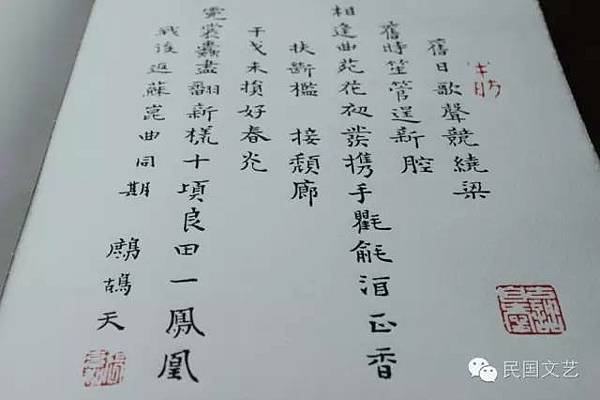 舊日歌聲競繞梁
舊時笙管逞新腔
相逢曲苑花初發携手氍毹酒正香
扶斷檻 接頹廊
干戈未損好春光
霓裳蠹盡翻新樣十頃良田一鳳凰
戰後返蘇崑曲同期 鷓鴣天
民国文艺